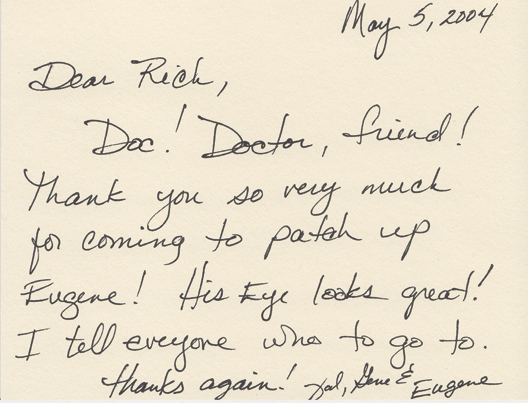 May 5, 2004
Dear Rich,
Doc! Doctor, friend!
Thank you so very much
for coming to patch up
Eugene! His Eye looks great!
I tell everyone who to go to.
Thanks again! Gene & Eugene